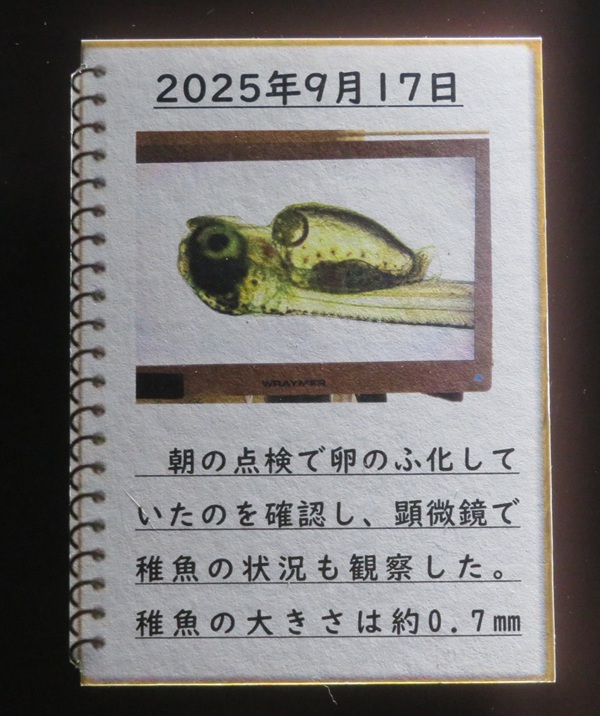 2025年9月17日
WRAYMER
朝の点検で卵のふ化して
いたのを確認し、顕微鏡で
稚魚の状況も観察した。
稚魚の大きさは約0.7mm